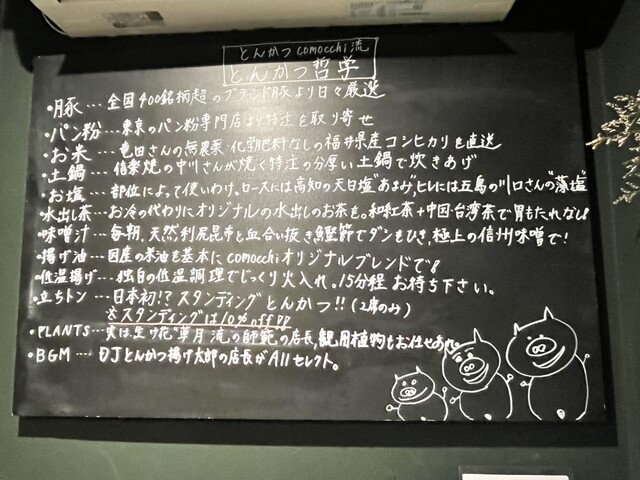 とんかつ comocchi 流
とんかつ哲学
・豚…全国400銘柄超のブランド豚より日々厳選
・パン粉…東京のパン粉専門店より特注を取り寄せ
・お米…竜田さんの無農薬 化学肥料なしの福井県産コシヒカリを直送
・土鍋…信楽焼の中川さんが焼く特注の分厚い土鍋で炊きあげ
・お塩…部位によって使いわけ。ロースには高知の天日塩"あまみ"、ヒレには五島の川口さんの"藻塩"
・水出し茶…お冷の代わりにオリジナルの水出しのお茶を。和紅茶+中国台湾茶で胃もたれなし!
・味噌汁…毎朝、天然利尻昆布と血合い抜き鰹節でダシをひき、極上の信州味噌で!
・揚げ油…国産の米油を基本にcomocchiオリジナルブレンドで!
・低温揚げ…独自の低温調理でじっくり火入れ。15分程お待ち下さい。
・立ちトン…日本初!?スタンディングとんかつ!!(2席のみ)
※スタンディングは10%off!!
・PLANTS…実は生け花"草月流の師範"の店長、観用植物もお任せあれ。
・BGM…DJとんかつ揚げ太郎の店長がAllセレクト。